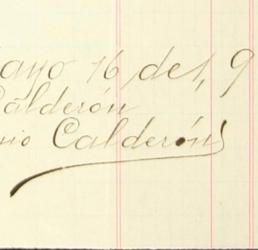 ayo 16 de 1, 9
Calderón
nio Calderón